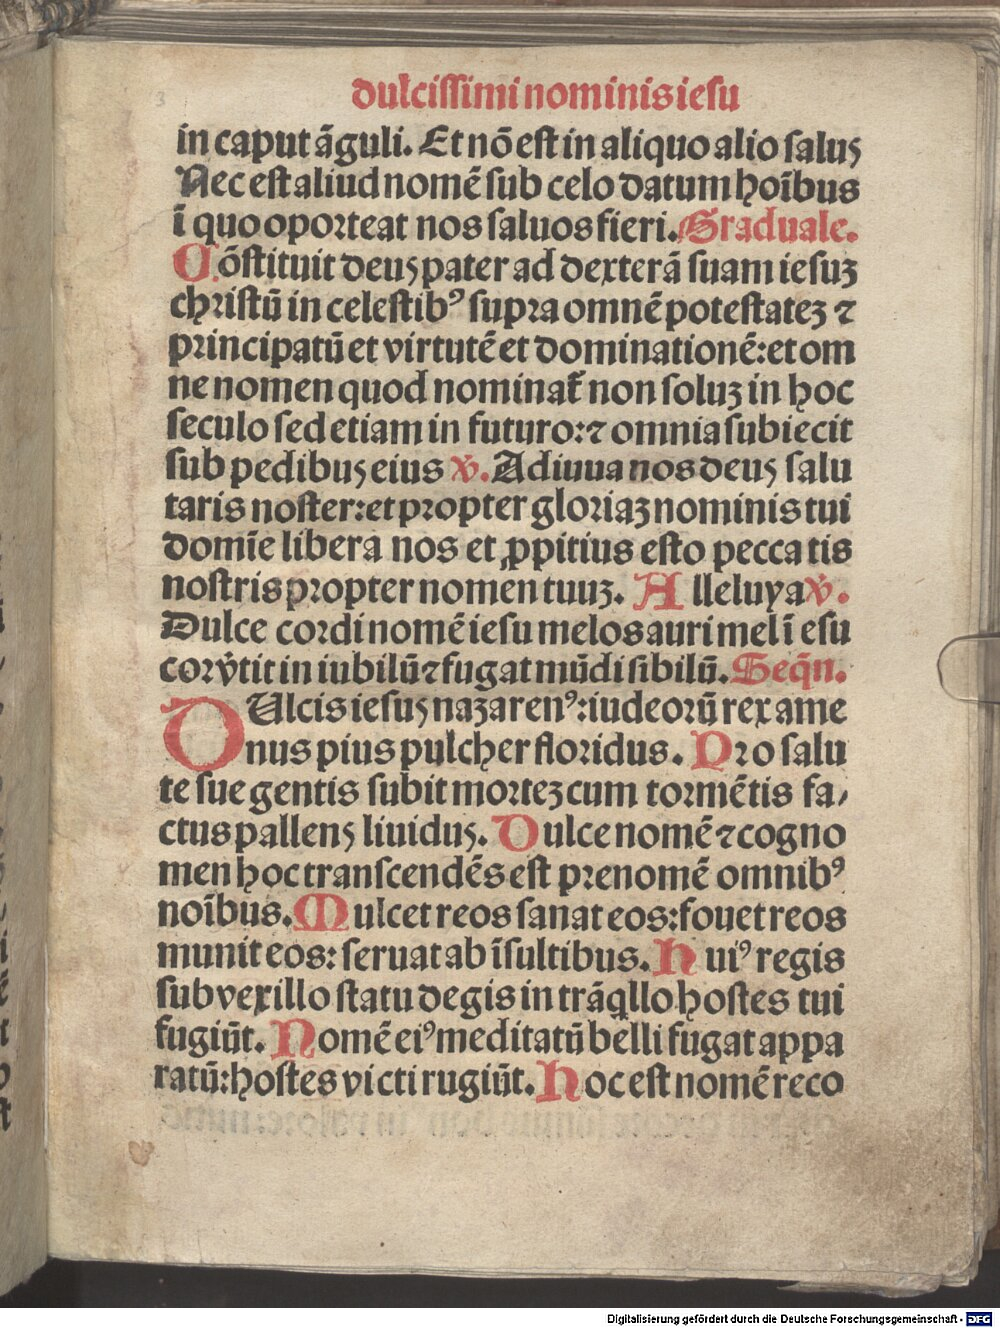 3
dulcissimi nominis iesu
in caput āguli. Et nō est in aliquo alio salus
Nec est aliud nomē sub celo datum hoībus
ī quo oporteat nos saluos fieri. Graduale.
Cōstituit deus pater ad dexterā suam iesuꝫ
christū in celestibꝰ supra omnē potestateꝫ ⁊
principatū et virtutē et dominationē: et om
ne nomen quod nominat̄ non soluꝫ in hoc
seculo sed etiam in futuro: ⁊ omnia subiecit
sub pedibus eius v̇. Adiuua nos deus salu
taris noster: et propter gloriaꝫ nominis tui
domīe libera nos et ꝓpitius esto peccatis
nostris propter nomen tuuꝫ. Alleluya v̇.
Dulce cordi nomē iesu melos auri mel ī esu
corv̇tit in iubilū ⁊ fugat mūdi sibilū. Seqn̄.
DUlcis iesus nazarenꝰ: iudeorū rex ame
nus pius pulcher floridus. Pro salu
te sue gentis subit morteꝫ cum tormētis fa/
ctus pallens liuidus. Dulce nomē ⁊ cogno
men hoc transcendēs est prenomē omnibꝰ
noībus. Mulcet reos sanat eos: fouet reos
munit eos: seruat ab īsultibus. Huiꝰ regis
sub vexillo statu degis in trāqllo hostes tui
fugiūt. Nomē eiꝰ meditatū belli fugat appa
ratū: hostes victi rugiūt. Hoc est nomē reco
Digitalisierung gefördert durch die Deutsche Forschungsgemeinschaft - DFG